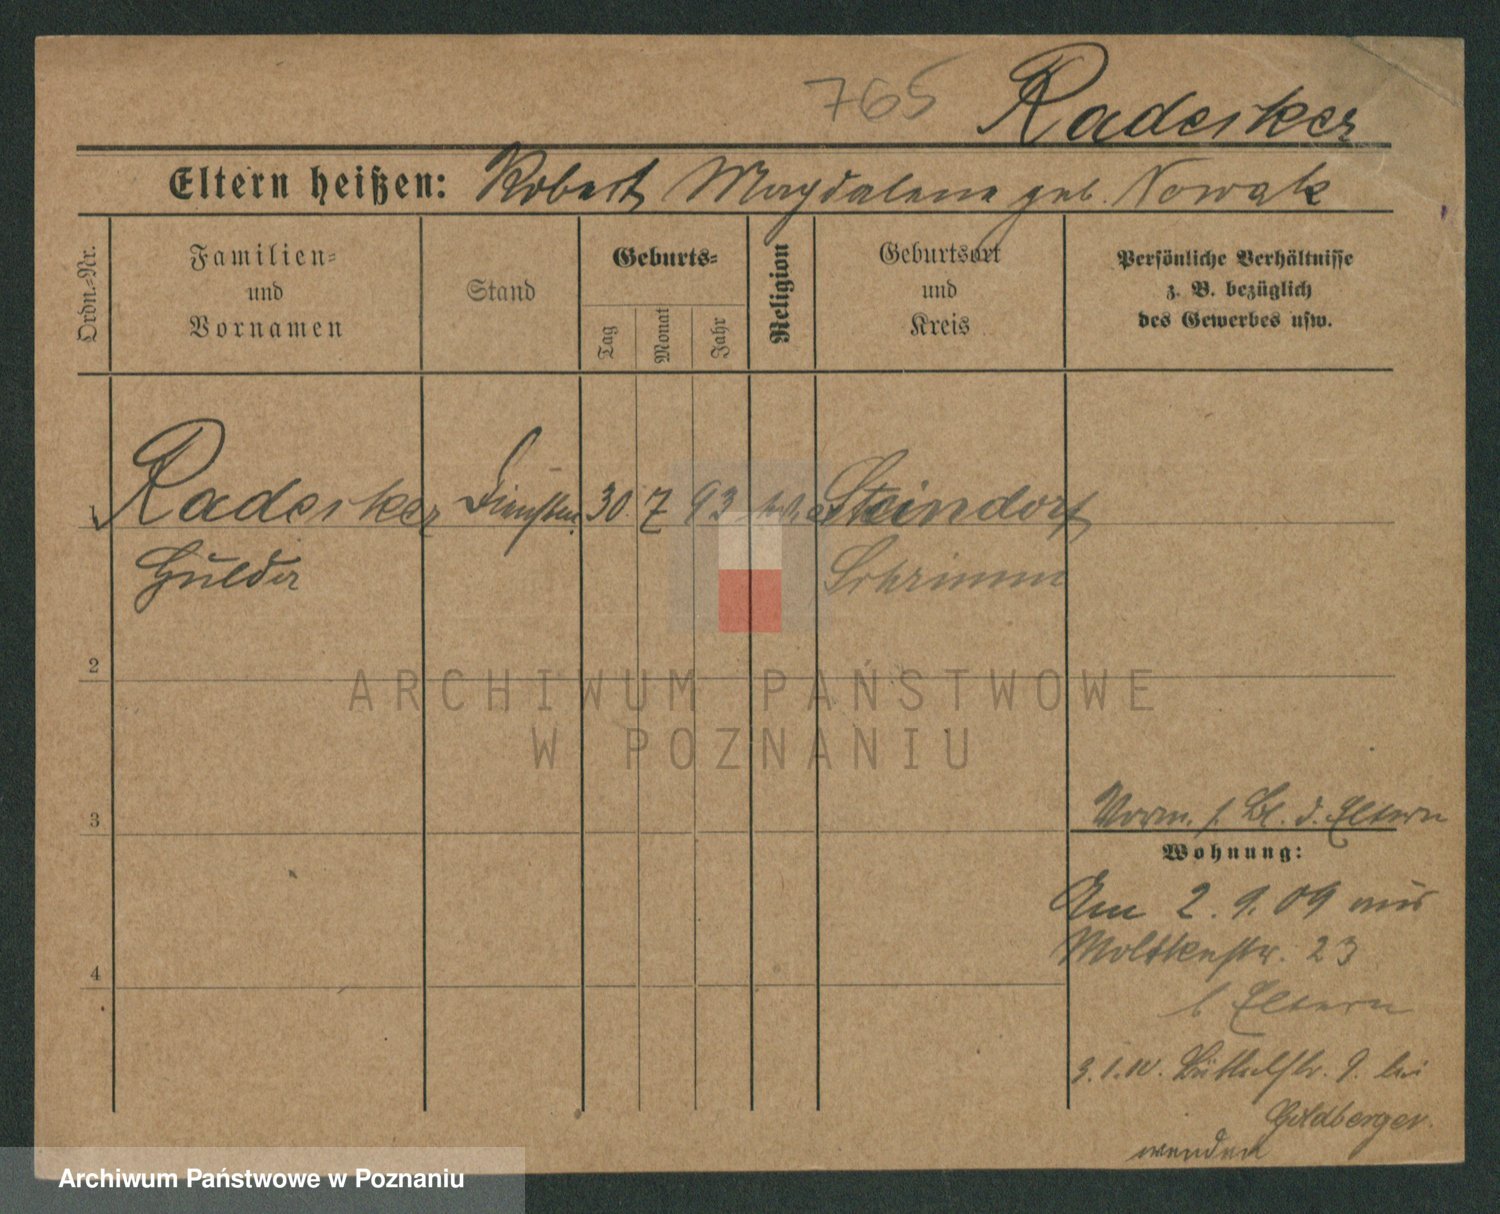 765 Radesker
Eltern heißen: Robert Magdalena geb. Nowak
Ordn.=Nr.
Familien=
und
Vornamen
Stand
Geburts=
Tag
Monat
Jahr
Religion
Geburtsort
und
Kreis
Persönliche Verhältnisse
z. B. bezüglich
des Gewerbes usw.
1 Radesker 30. 7 93 Steindorf
Hulda Schrimm
2
3
4
Vorm. s. Bl. d. Eltern
Wohnung:
Am 2. 9. 09 aus
Moltkestr. 23
b Eltern
3.1.10. 9. bei
Goldberger.
wenden
ARCHIWUM PAŃSTWOWE
W POZNANIU
Archiwum Państwowe w Poznaniu